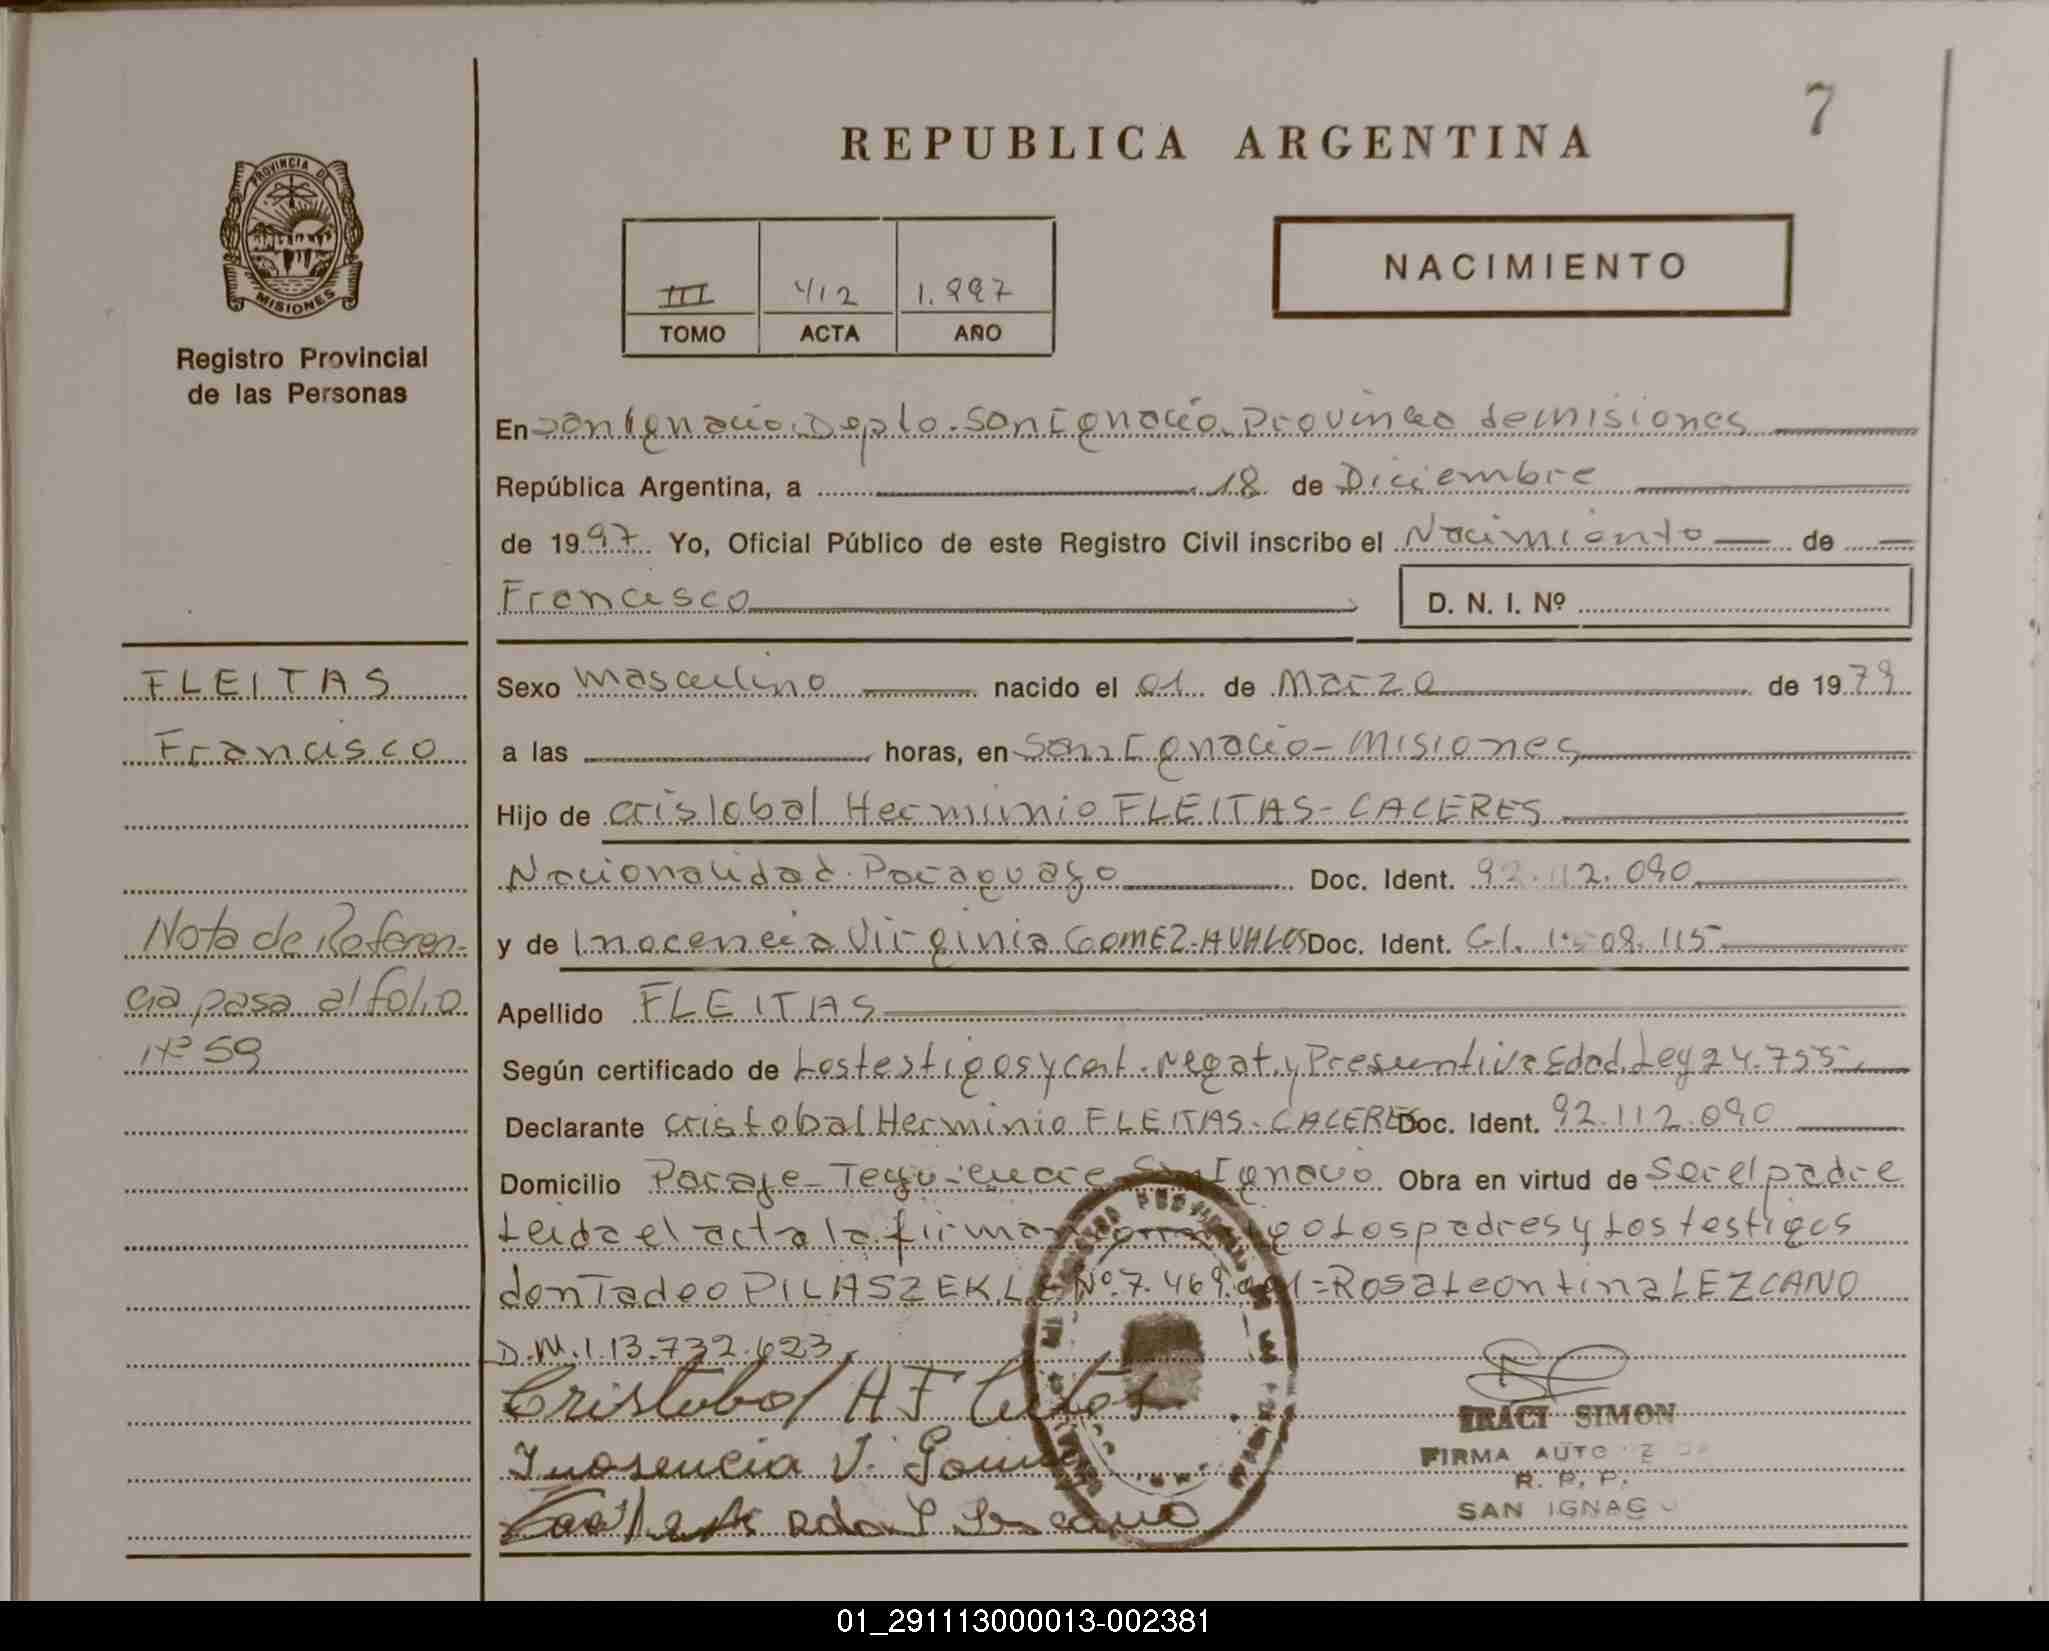 7
REPUBLICA ARGENTINA
PROVINCIA DE
MISIONES
NACIMIENTO
III 412 1.997
TOMO ACTA AÑO
Registro Provincial
de las Personas
En San Ignacio. Depto. San Ignacio. Provincia de Misiones
República Argentina, a 18 de Diciembre
de 1997 Yo, Oficial Público de este Registro Civil inscribo el Nacimiento de
Francisco D. N. I. Nº
FLEITAS
Francisco
Nota de Referen-
cia pasa al folio
Nº 59
Sexo Masculino nacido el 01 de Marzo de 1979
a las horas, en San Ignacio - Misiones
Hijo de Cristobal Herminio FLEITAS - CACERES
Nacionalidad Paraguayo Doc. Ident. 92.112.090
y de Inocencia Virginia GOMEZ-AVALOS Doc. Ident. C.I.
Apellido FLEITAS
Según certificado de Los testigos y cert. Negat. y Presuntiva Edad. Ley 24.755
Declarante Cristobal Herminio FLEITAS - CACERES Doc. Ident. 92.112.090
Domicilio Paraje - San Ignacio Obra en virtud de Ser el padre
Leida el acta la firman Los padres y Los testigos
don Tadeo PILASZEK L.E Nº 7.469. = Rosa Leontina LEZCANO
D.N.I. 13.732.623
Cristobal H F
Inosencia V.
IRACI SIMON
FIRMA
R. P. P.
SAN IGNAC
01_291113000013-002381